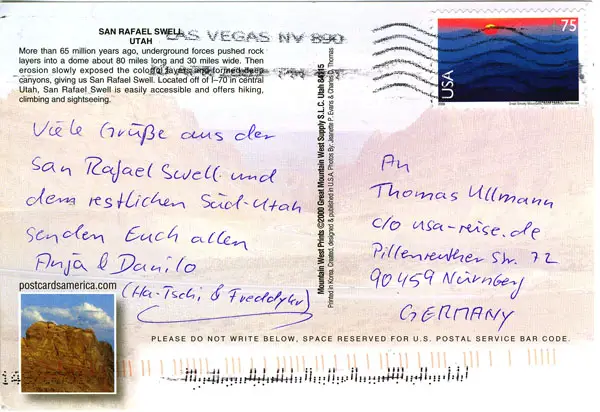 SAN RAFAEL SWELL
UTAH
More than 65 million years ago, underground forces pushed rock
layers into a dome about 80 miles long and 30 miles wide. Then
erosion slowly exposed the colorful layers and formed deep
canyons, giving us San Rafael Swell. Located off of I–70 in central
Utah, San Rafael Swell is easily accessible and offers hiking,
climbing and sightseeing.
LAS VEGAS NV 890
75
USA
Viele Grüße aus der
San Rafael Swell und
dem restlichen Süd-Utah
senden Euch allen
Anja & Danilo
(Ha-Tschi & Freddykr)
postcardsamerica.com
Mountain West Prints ©2000 Great Mountain West Supply S.L.C. Utah 84115
Printed in Korea. Created, designed & published in U.S.A. Photos By: Jeanette P. Evans & Charles D. Thomas
An
Thomas Ullmann
c/o usa-reise.de
Pillenreuther Str. 72
90459 Nürnberg
GERMANY
PLEASE DO NOT WRITE BELOW, SPACE RESERVED FOR U.S. POSTAL SERVICE BAR CODE.